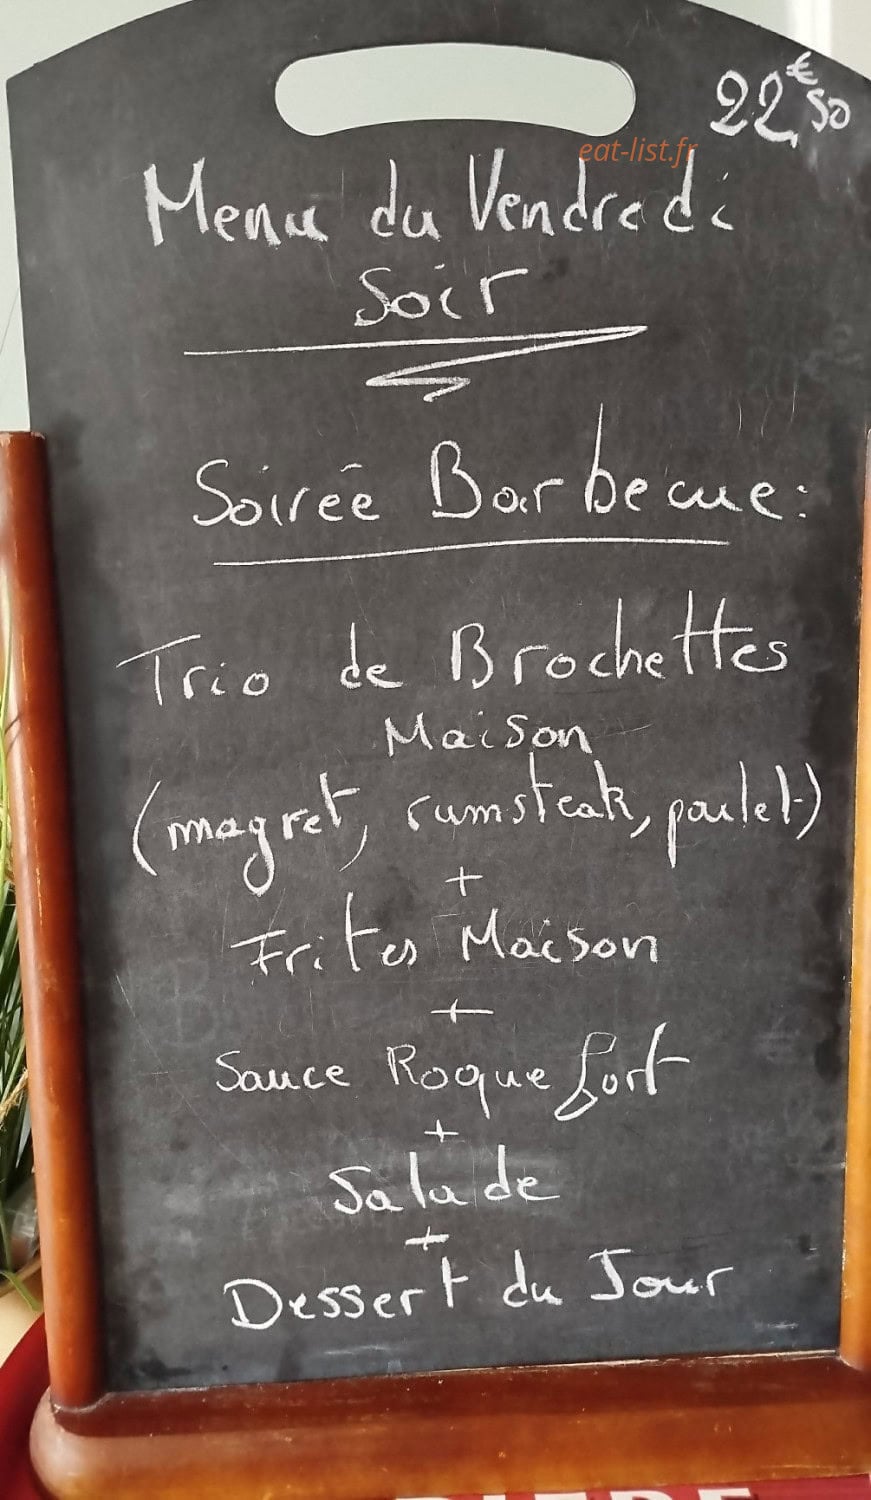 22,€50
eat-list.fr
Menu du Vendredi
Soir
Soirée Barbecue:
Trio de Brochettes
Maison
(magret, rumsteak, poulet)
+
Frites Maison
+
Sauce Roquefort
+
Salade
+
Dessert du Jour